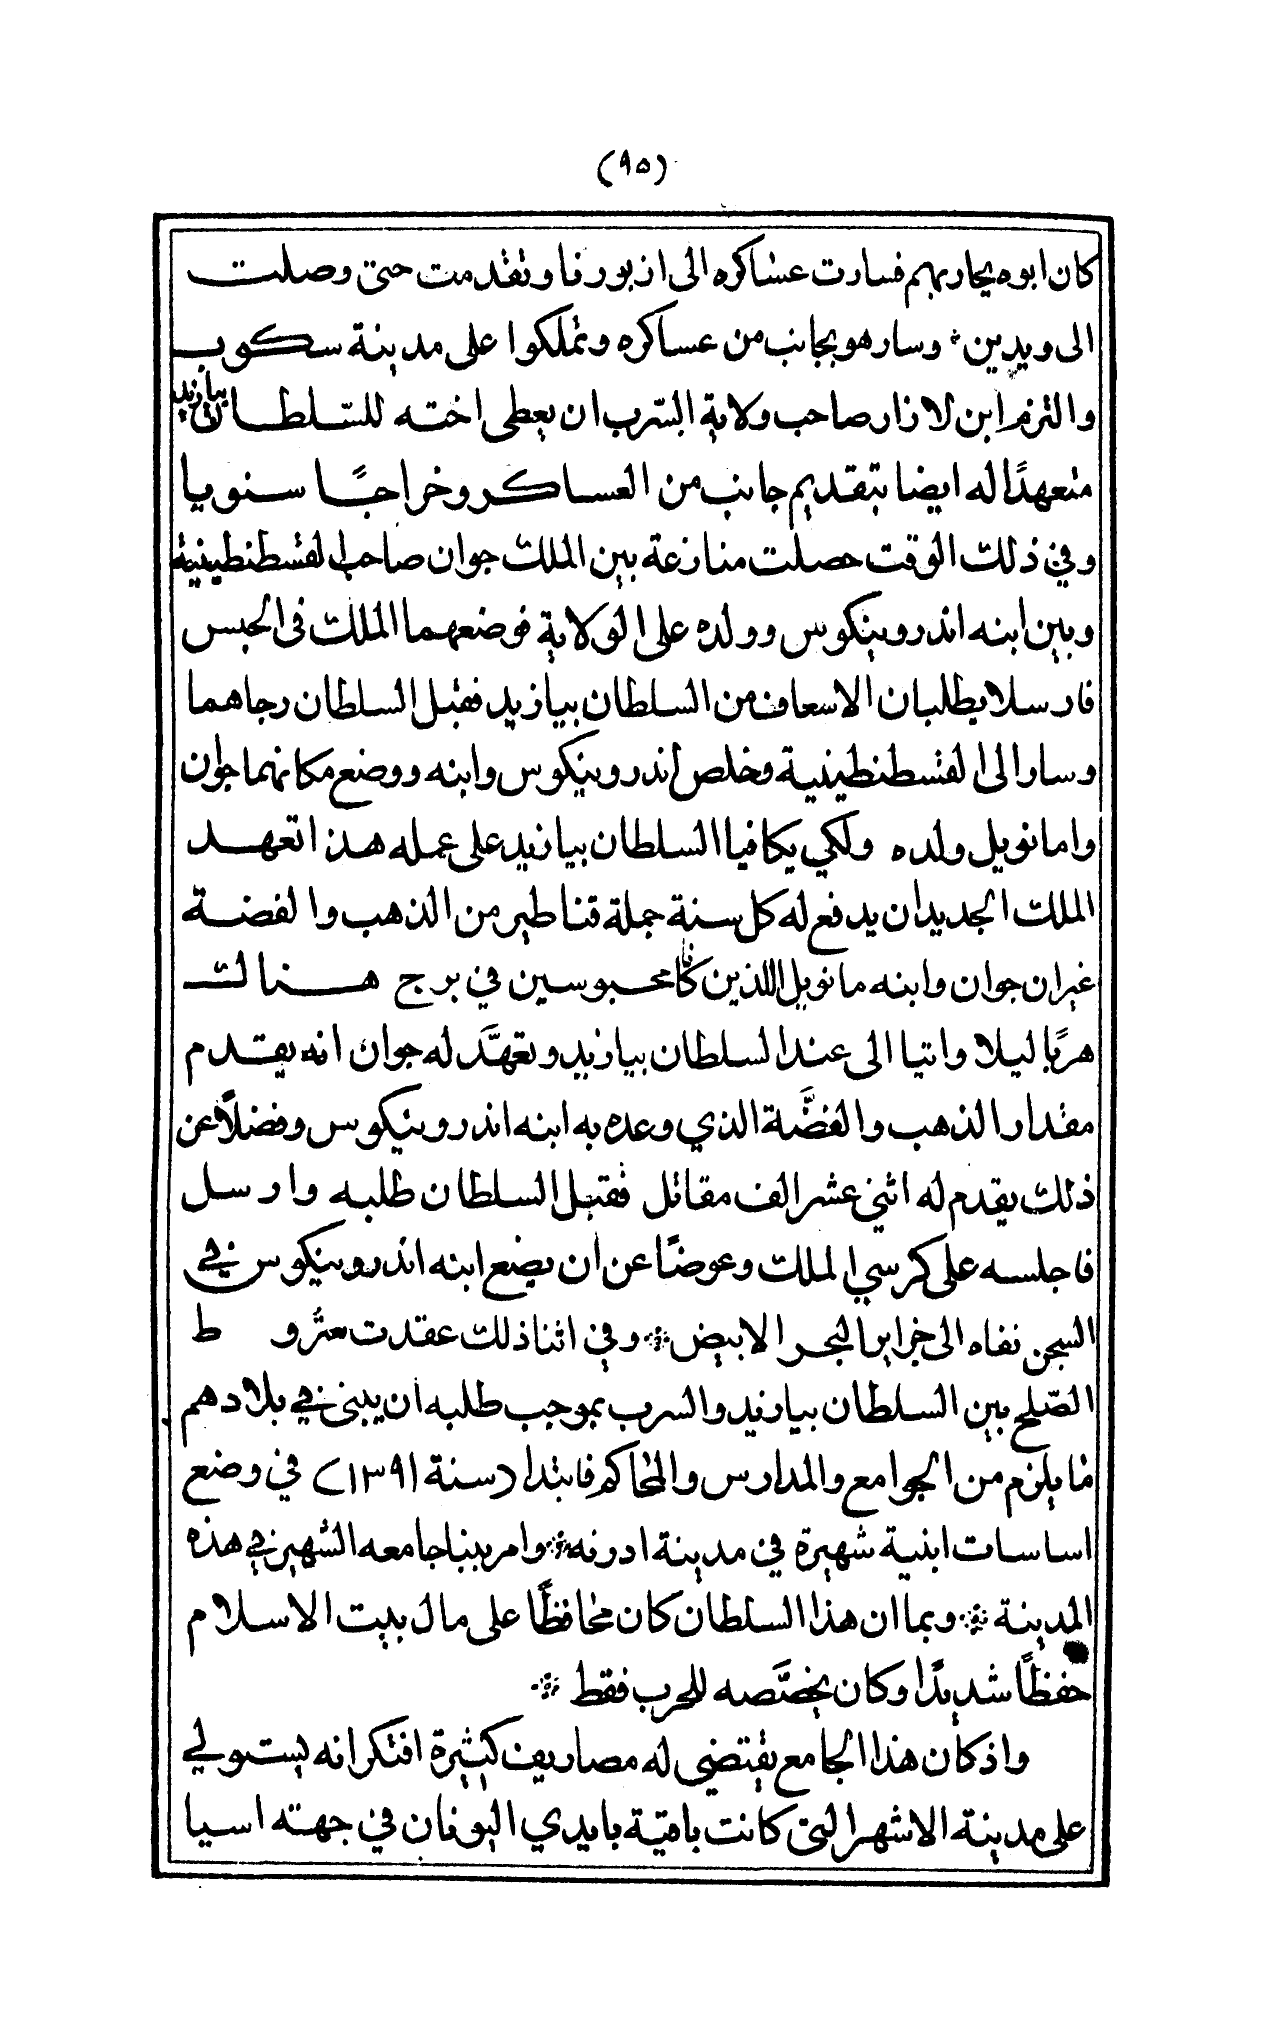 (٩٥)
كان ابوه يحاربهم فسارت عساكره الى ازبورنا وتقدمت حتى وصلت
الى ويدين * وسار هو بجانب من عساكره وتملكوا على مدينة سكوب
والتزم ابن لازار صاحب ولاية السّرب ان يعطى اخته للسّلطان بيازيد
متعهدًا له ايضا بتقديم جانب من العساكر وخراجًا سنويا
وفي ذلك الوقت حصلت منازعة بين الملك جوان صاحب القسطنطينية
وبين ابنه اندرونيكوس وولده على الولاية فوضعهما الملك فى الحبس
فارسلا يطلبان الاسعاف من السلطان بيازيد فقبل السلطان رجاهما
وسارا الى القسطنطينية وخلص اندرونيكوس وابنه ووضع مكانهما جوان
وامانويل ولده ولكي يكافيا السلطان بيازيد على عمله هذا تعهد
الملك الجديد ان يدفع له كل سنة جملة قناطير من الذهب والفضة
غيران جوان وابنه مانويل اللذين كانا محبوسين في برج هنالك
هربا ليلا واتيا الى عند السلطان بيازيد وتعهَّد له جوان انه يقدم
مقدار الذهب والفضَّة الذي وعده به ابنه اندرونيكوس وفضلًا عن
ذلك يقدم له اثني عشر الف مقاتل فقبل السلطان طلبه وارسل
فاجلسه على كرسي الملك وعوضًا عن ان يضع ابنه اندرونيكوس في
السجن نفاه الى جزاير البحر الابيض * وفي اثنا ذلك عقدت شروط
الصّلح بين السلطان بيازيد والسرب بموجب طلبه ان يبنى في بلادهم
ما يلزم من الجوامع والمدارس والمحاكم فابتدا (سنة ١٣٩١) في وضع
اساسات ابنية شهيرة في مدينة ادرنه * وامر ببنا جامعه الشهير في هذه
المدينة * وبما ان هذا السلطان كان محافظًا على مال بيت الاسلام
حفظًا شديدًا وكان يخصّصه للحرب فقط *
واذ كان هذا الجامع يقتضي له مصاريف كثيرة افتكر انه يستولي
على مدينة الاشهر التى كانت باقية بايدي اليونان في جهته اسيا